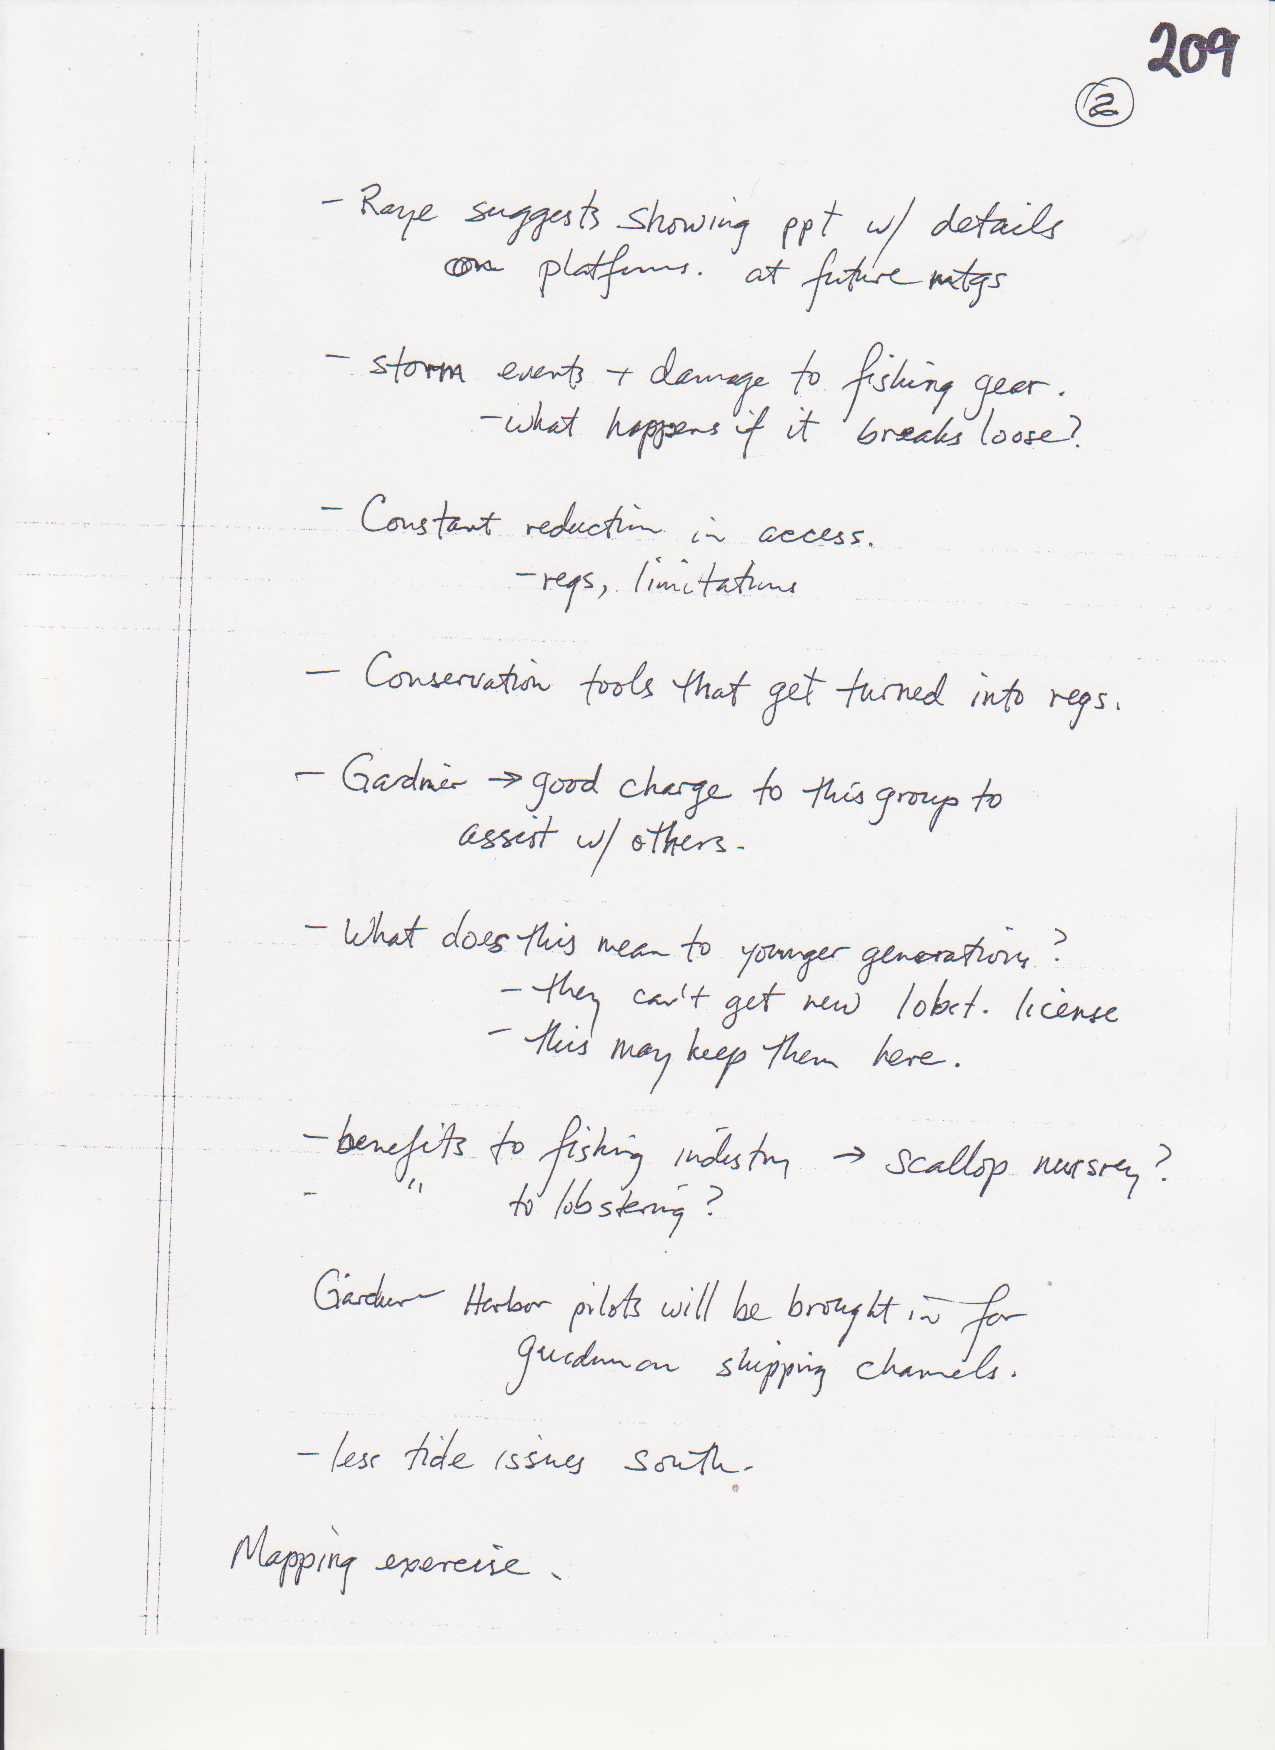 209
2
- Raye suggests showing ppt w/ details
on platforms. at future mtgs
- storm events + damage to fishing gear.
- what happens if it breaks loose?
- Constant reduction in access.
- regs, limitations
- Conservation tools that get turned into regs.
- Gardner → good charge to this group to
assist w/ others.
- What does this mean to younger generations?
- they can't get new lobst. license
- this may keep them here.
- benefits to fishing industry → scallop nursrey?
- " to lobstering?
Gardner - Harbor pilots will be brought in for
on shipping channels.
- less tide issues south.
Mapping exercise.